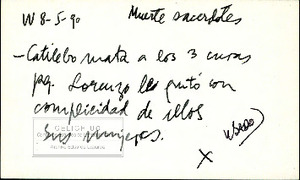 W 8-5-90 Muerte sacerdotes
- Catilebo mata a los 3 curas
pq. Lorenzo les gritó con
complicidad de ellos
sus mujeres.
usado
X
GELICH UC